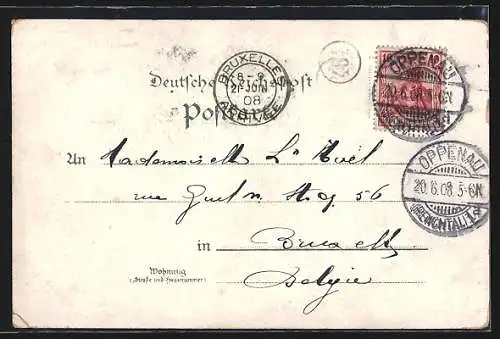 BRUXELLES
8-9
21 JUIN
08
ARRIVEE
OPPENAU
20.6.08.5-6N
(RENCHTAL)
Deutsche Reichspost
Postkarte
OPPENAU
20.6.08.5-6N
(RENCHTAL) 1.
An Mademoiselle
rue 56
in Bruxelles
Belgie
Wohnung
(Straße und Hausnummer)